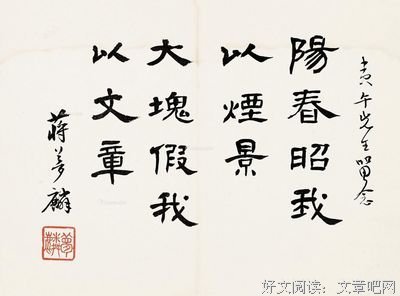 午先生留念
陽春昭我
以煙景
大塊假我
以文章
蔣夢麟
好文阅读:文章吧网